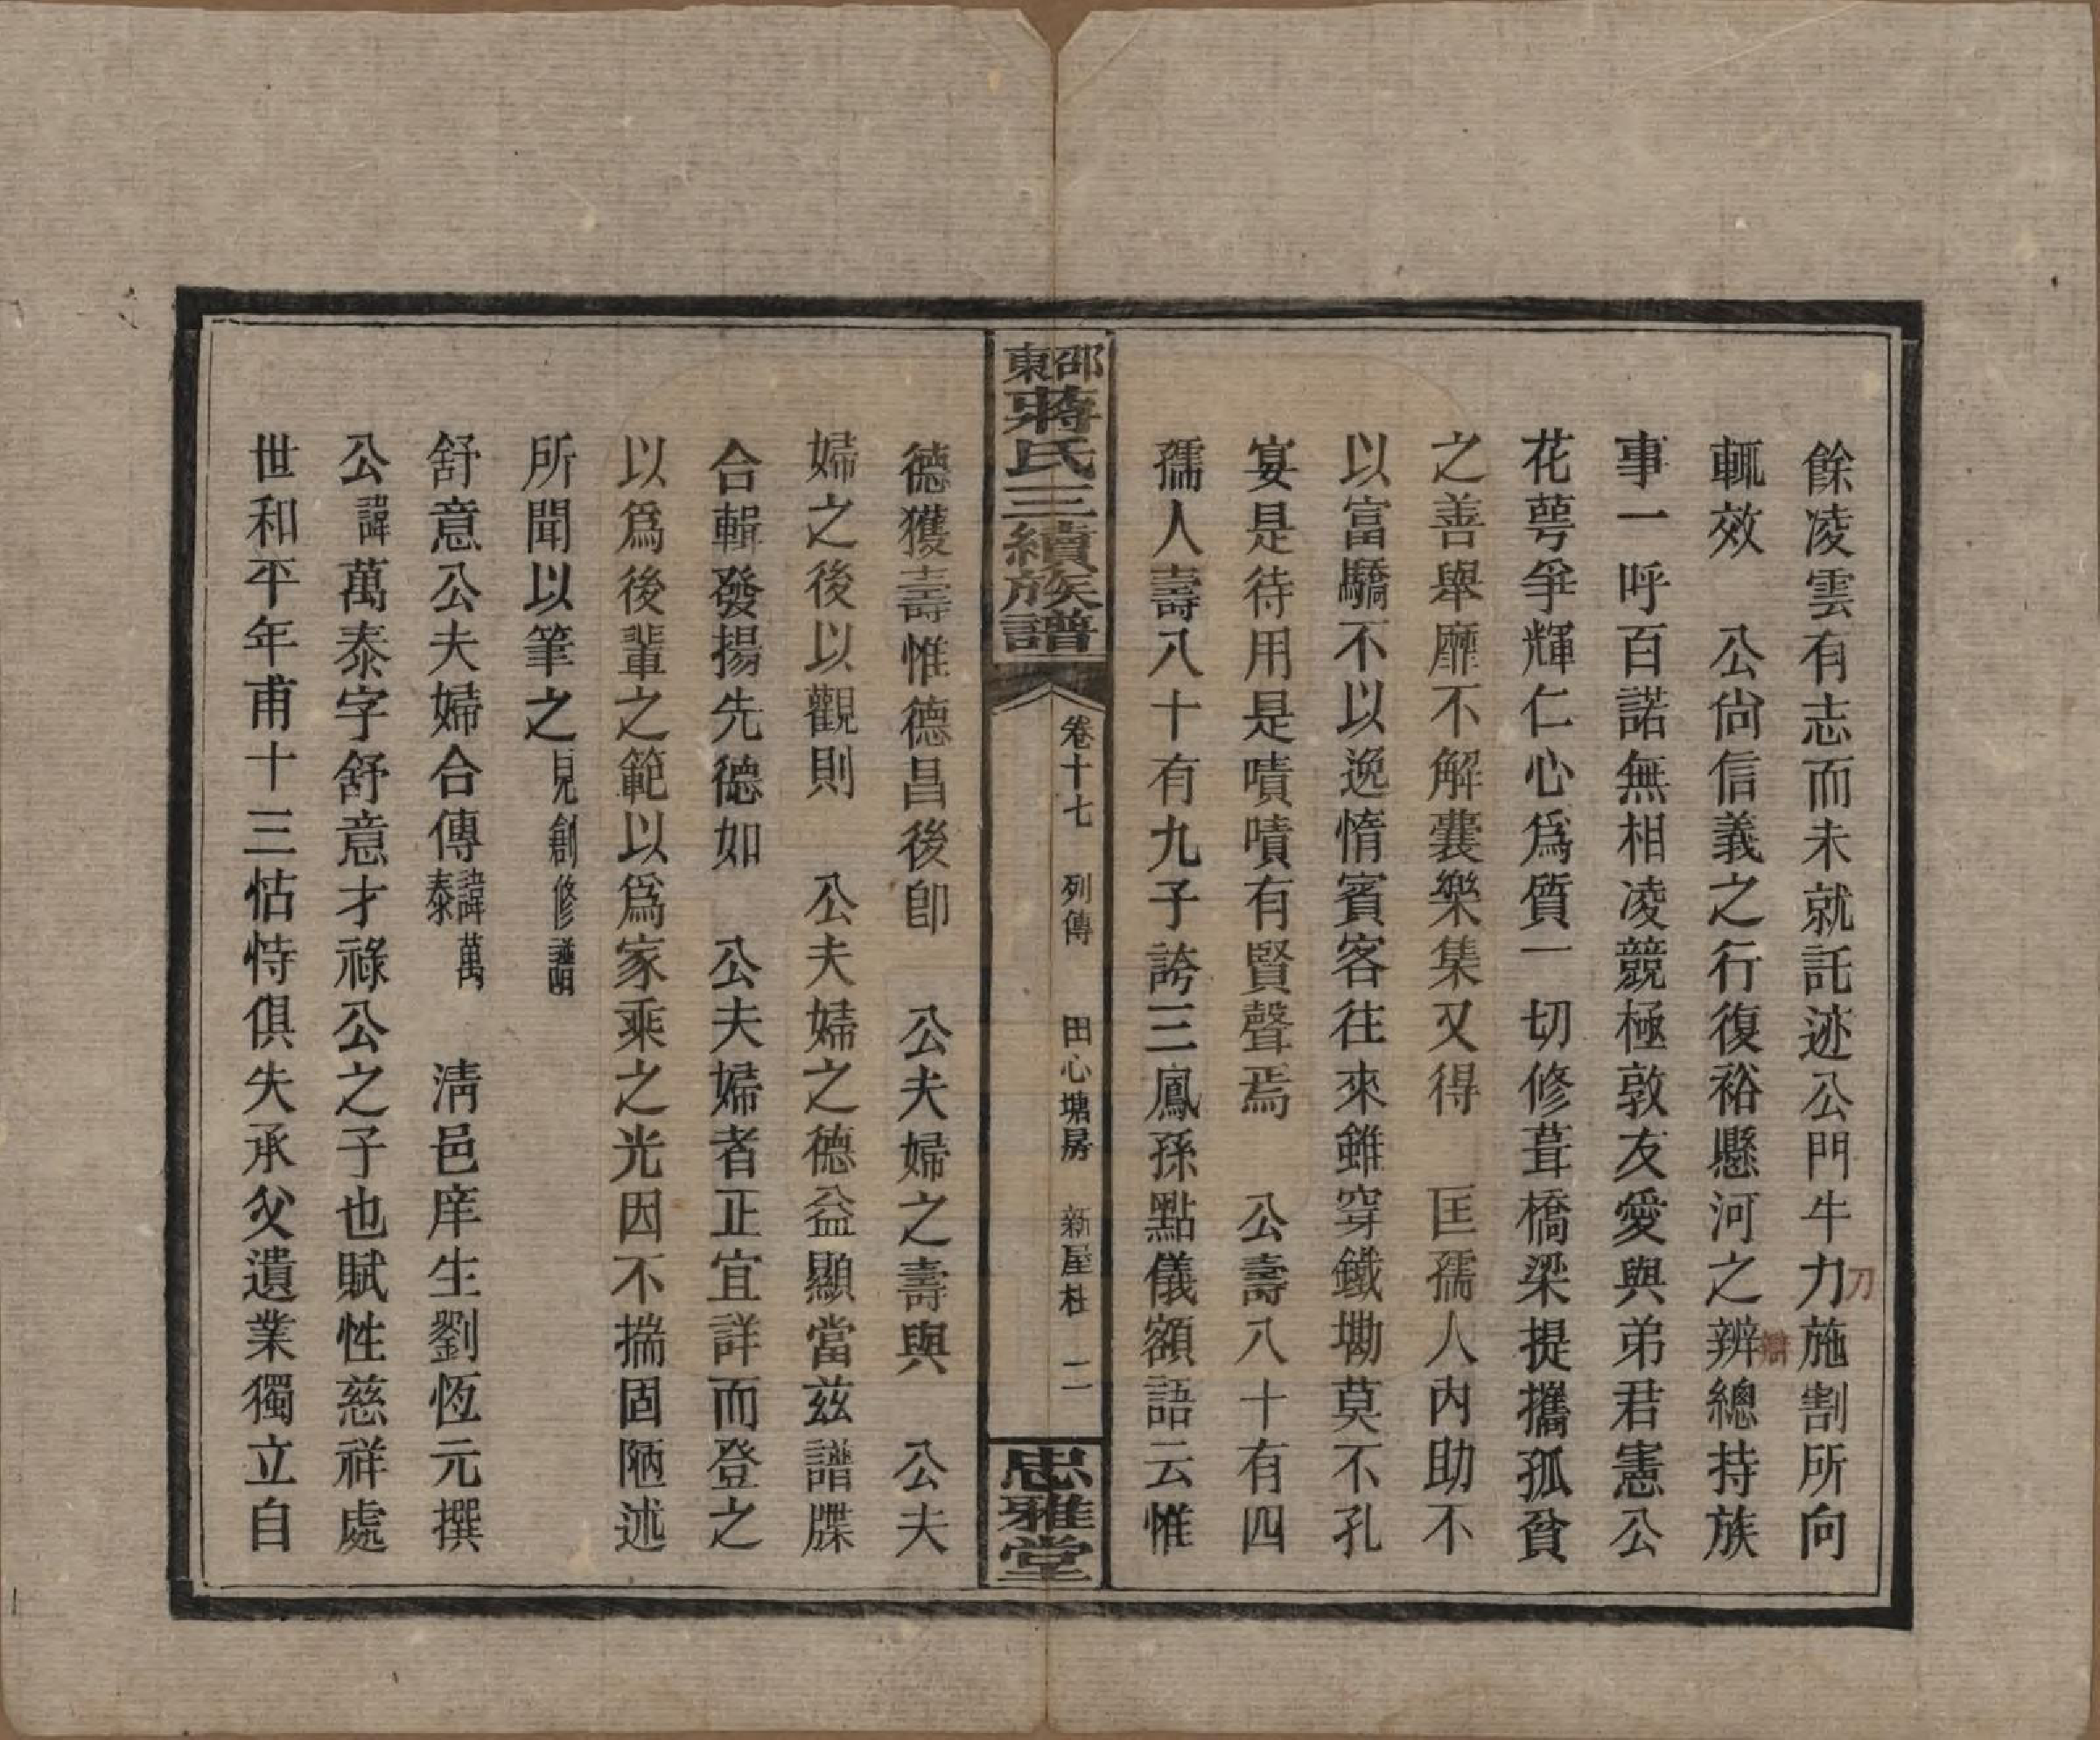 餘凌雲有志而未就託迹公門牛力施割所向
刀
輒效　公尙信義之行復裕懸河之辨總持族
辯
事一呼百諾無相凌競極敦友愛與弟君憲公
花萼爭輝仁心爲質一切修葺橋梁提攜孤貧
之善舉靡不解囊樂集又得　匡孺人內助不
以富驕不以逸惰賓客往來雖穿鐵墈莫不孔
宴是待用是嘖嘖有賢聲焉　公壽八十有四
孺人壽八十有九子誇三鳳孫點儀額語云惟
邵東蔣氏三續族譜
卷十七　列傳　田心塘房　新屋杜　二
忠雅堂
德獲壽惟德昌後卽　公夫婦之壽與　公夫
婦之後以觀則　公夫婦之德益顯當茲譜牒
合輯發揚先德如　公夫婦者正宜詳而登之
以爲後輩之範以爲家乘之光因不揣固陋述
所聞以筆之見創修譜
舒意公夫婦合傳諱萬泰　淸邑庠生劉恆元撰
公諱萬泰字舒意才祿公之子也賦性慈祥處
世和平年甫十三怙恃俱失承父遺業獨立自